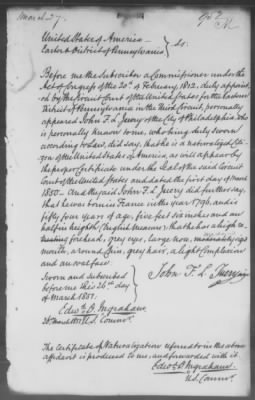 United States of America
Eastern District of Pennsylvania } Ss:
Before me the Subscriber a Commissioner under the
Act of Congress of the 20th of February, 1812, duly appoint
ed by the Circuit Court of the United States for the Eastern
District of Pennsylvania in the Third Circuit, personally
appeared John F. L. of the City of Philadelphia who
is personally known to me, who being duly sworn
according to Law, did say, that he is a naturalized Citi
zen of the United States of America, as will appear by
the proper Certificate under the Seal of the said Circuit
Court of the United States authenticated the first day of
1850 And the said John F. L. did further say,
that he was born in France in the year 1796, and is
fifty four years of age, five feet six inches and an
half in heighth (English measure) that he has a high
forehead, grey eyes, large nose,
mouth, round Chin, grey hair, a light Complexion
and an oval face
Sworn and subscribed
before me this 26th day
of March 1851.
John F. L.
Edwd D. Ingraham
U.S. Commr.
The Certificate of Naturalization referred to in the above
affidavit is produced to me, and forwarded with it.
Edwd D. Ingraham
U.S. Commr.